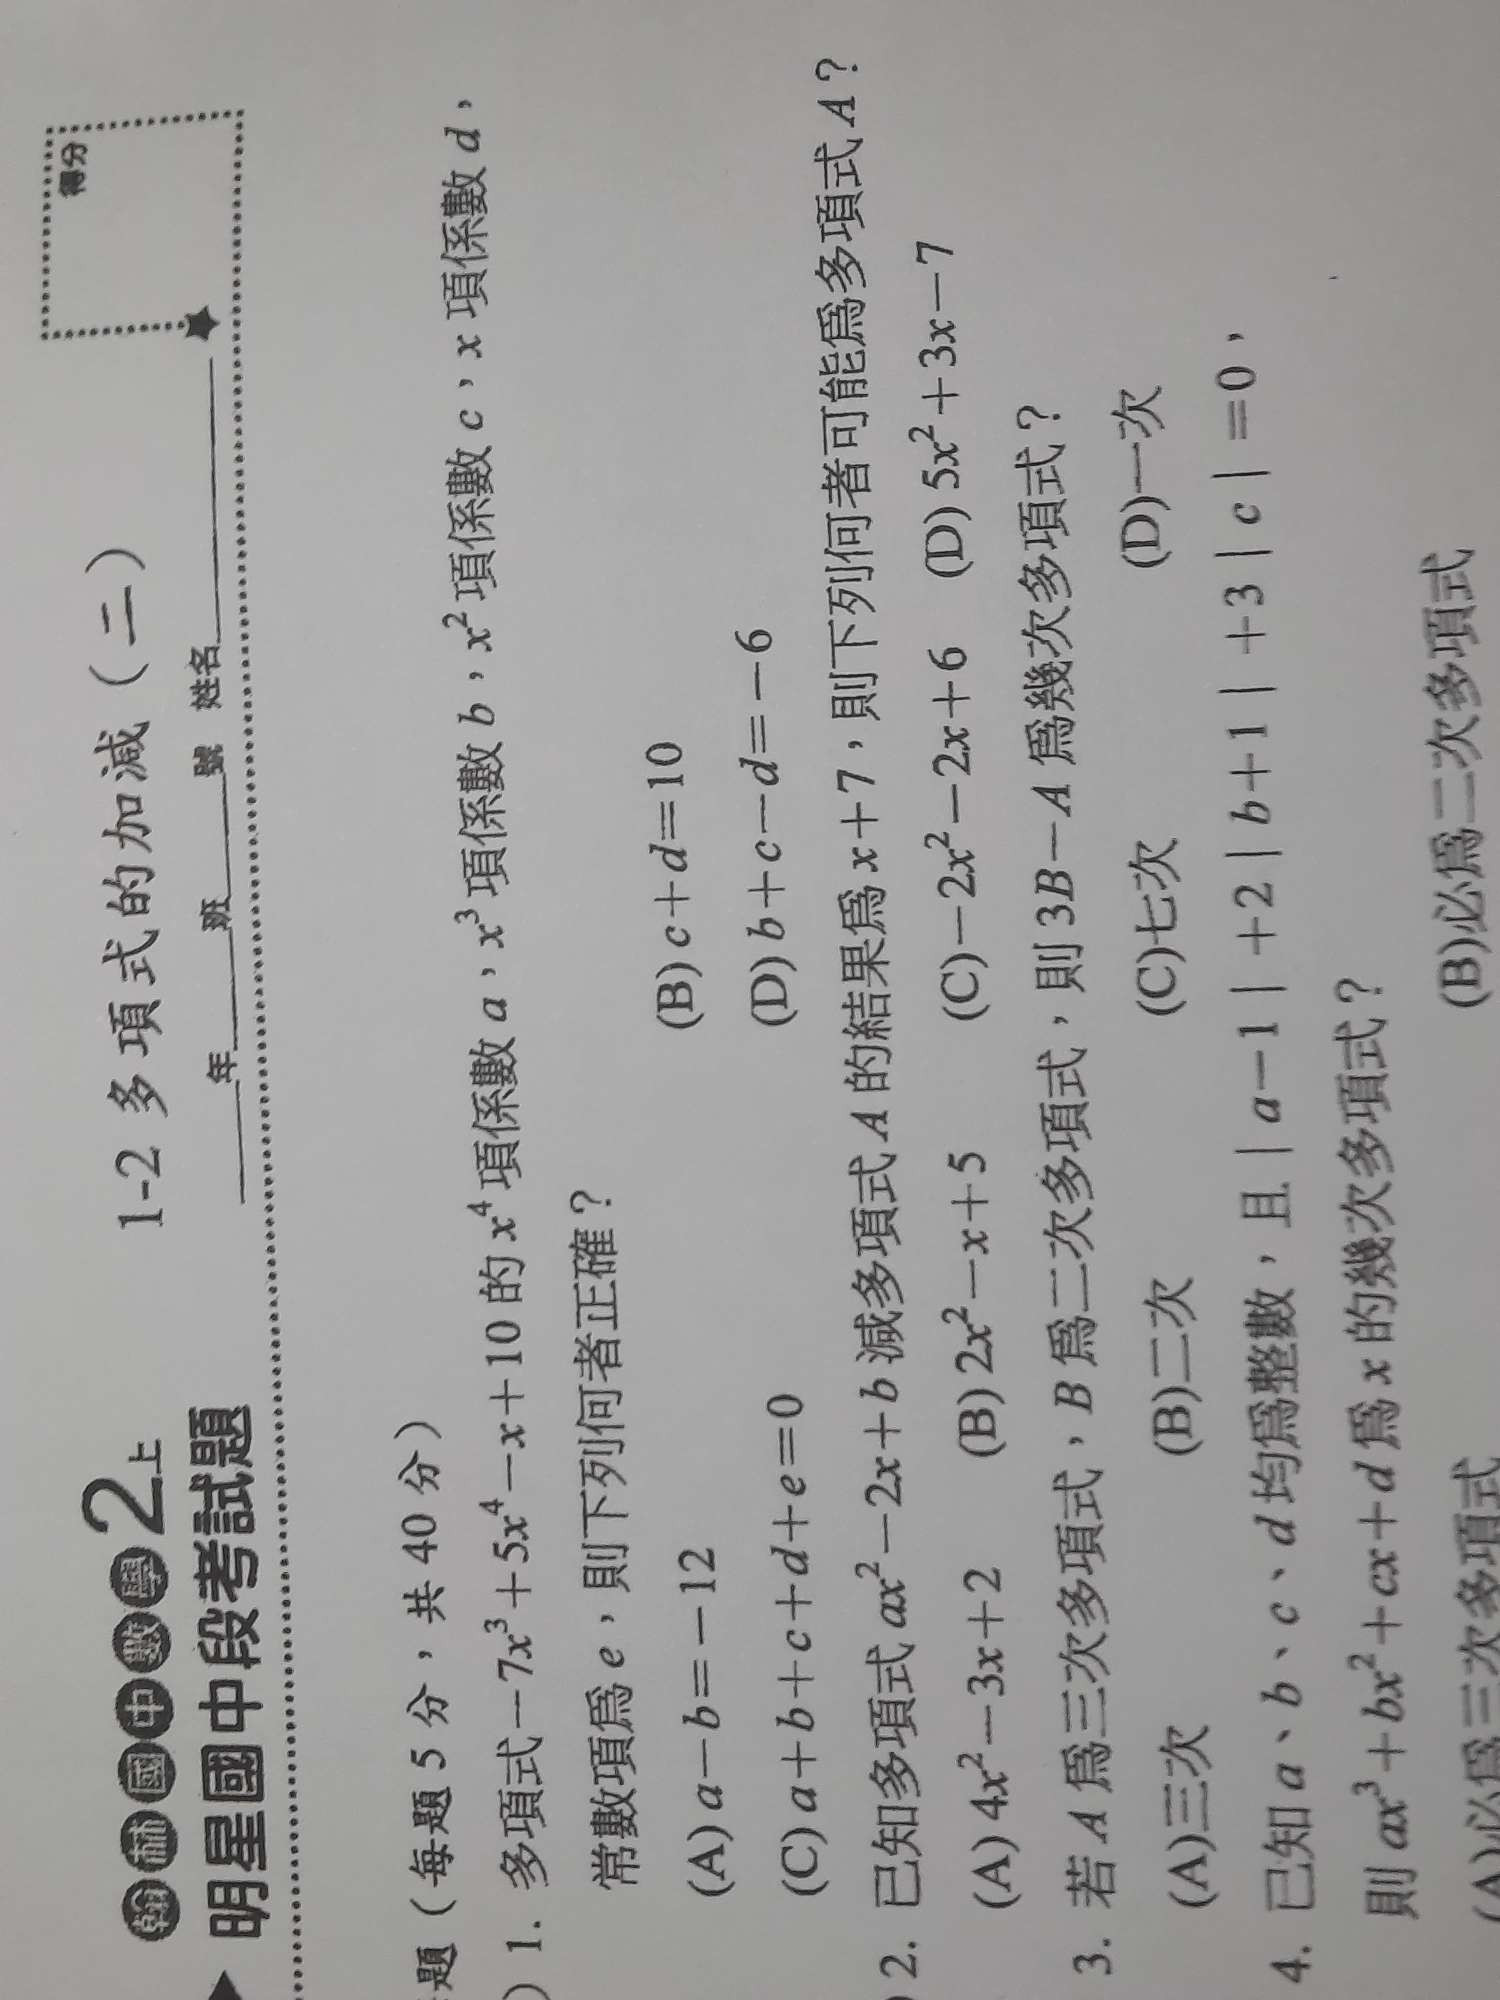 翰林國中數學2上
明星國中段考試題
1-2 多項式的加減（二）
年 班 號 姓名
得分
題（每題 5 分，共 40 分）
) 1. 多項式－7x³＋5x⁴－x＋10 的 x⁴ 項係數 a，x³ 項係數 b，x² 項係數 c，x 項係數 d，
常數項爲 e，則下列何者正確？
(A) a－b＝－12 (B) c＋d＝10
(C) a＋b＋c＋d＋e＝0 (D) b＋c－d＝－6
) 2. 已知多項式 ax²－2x＋b 減多項式 A 的結果爲 x＋7，則下列何者可能爲多項式 A？
(A) 4x²－3x＋2 (B) 2x²－x＋5 (C)－2x²－2x＋6 (D) 5x²＋3x－7
3. 若 A 爲三次多項式，B 爲二次多項式，則 3B－A 爲幾次多項式？
(A)三次 (B)二次 (C)七次 (D)一次
4. 已知 a、b、c、d 均爲整數，且｜a－1｜＋2｜b＋1｜＋3｜c｜＝0，
則 ax³＋bx²＋cx＋d 爲 x 的幾次多項式？
(A)必爲三次多項式 (B)必爲二次多項式